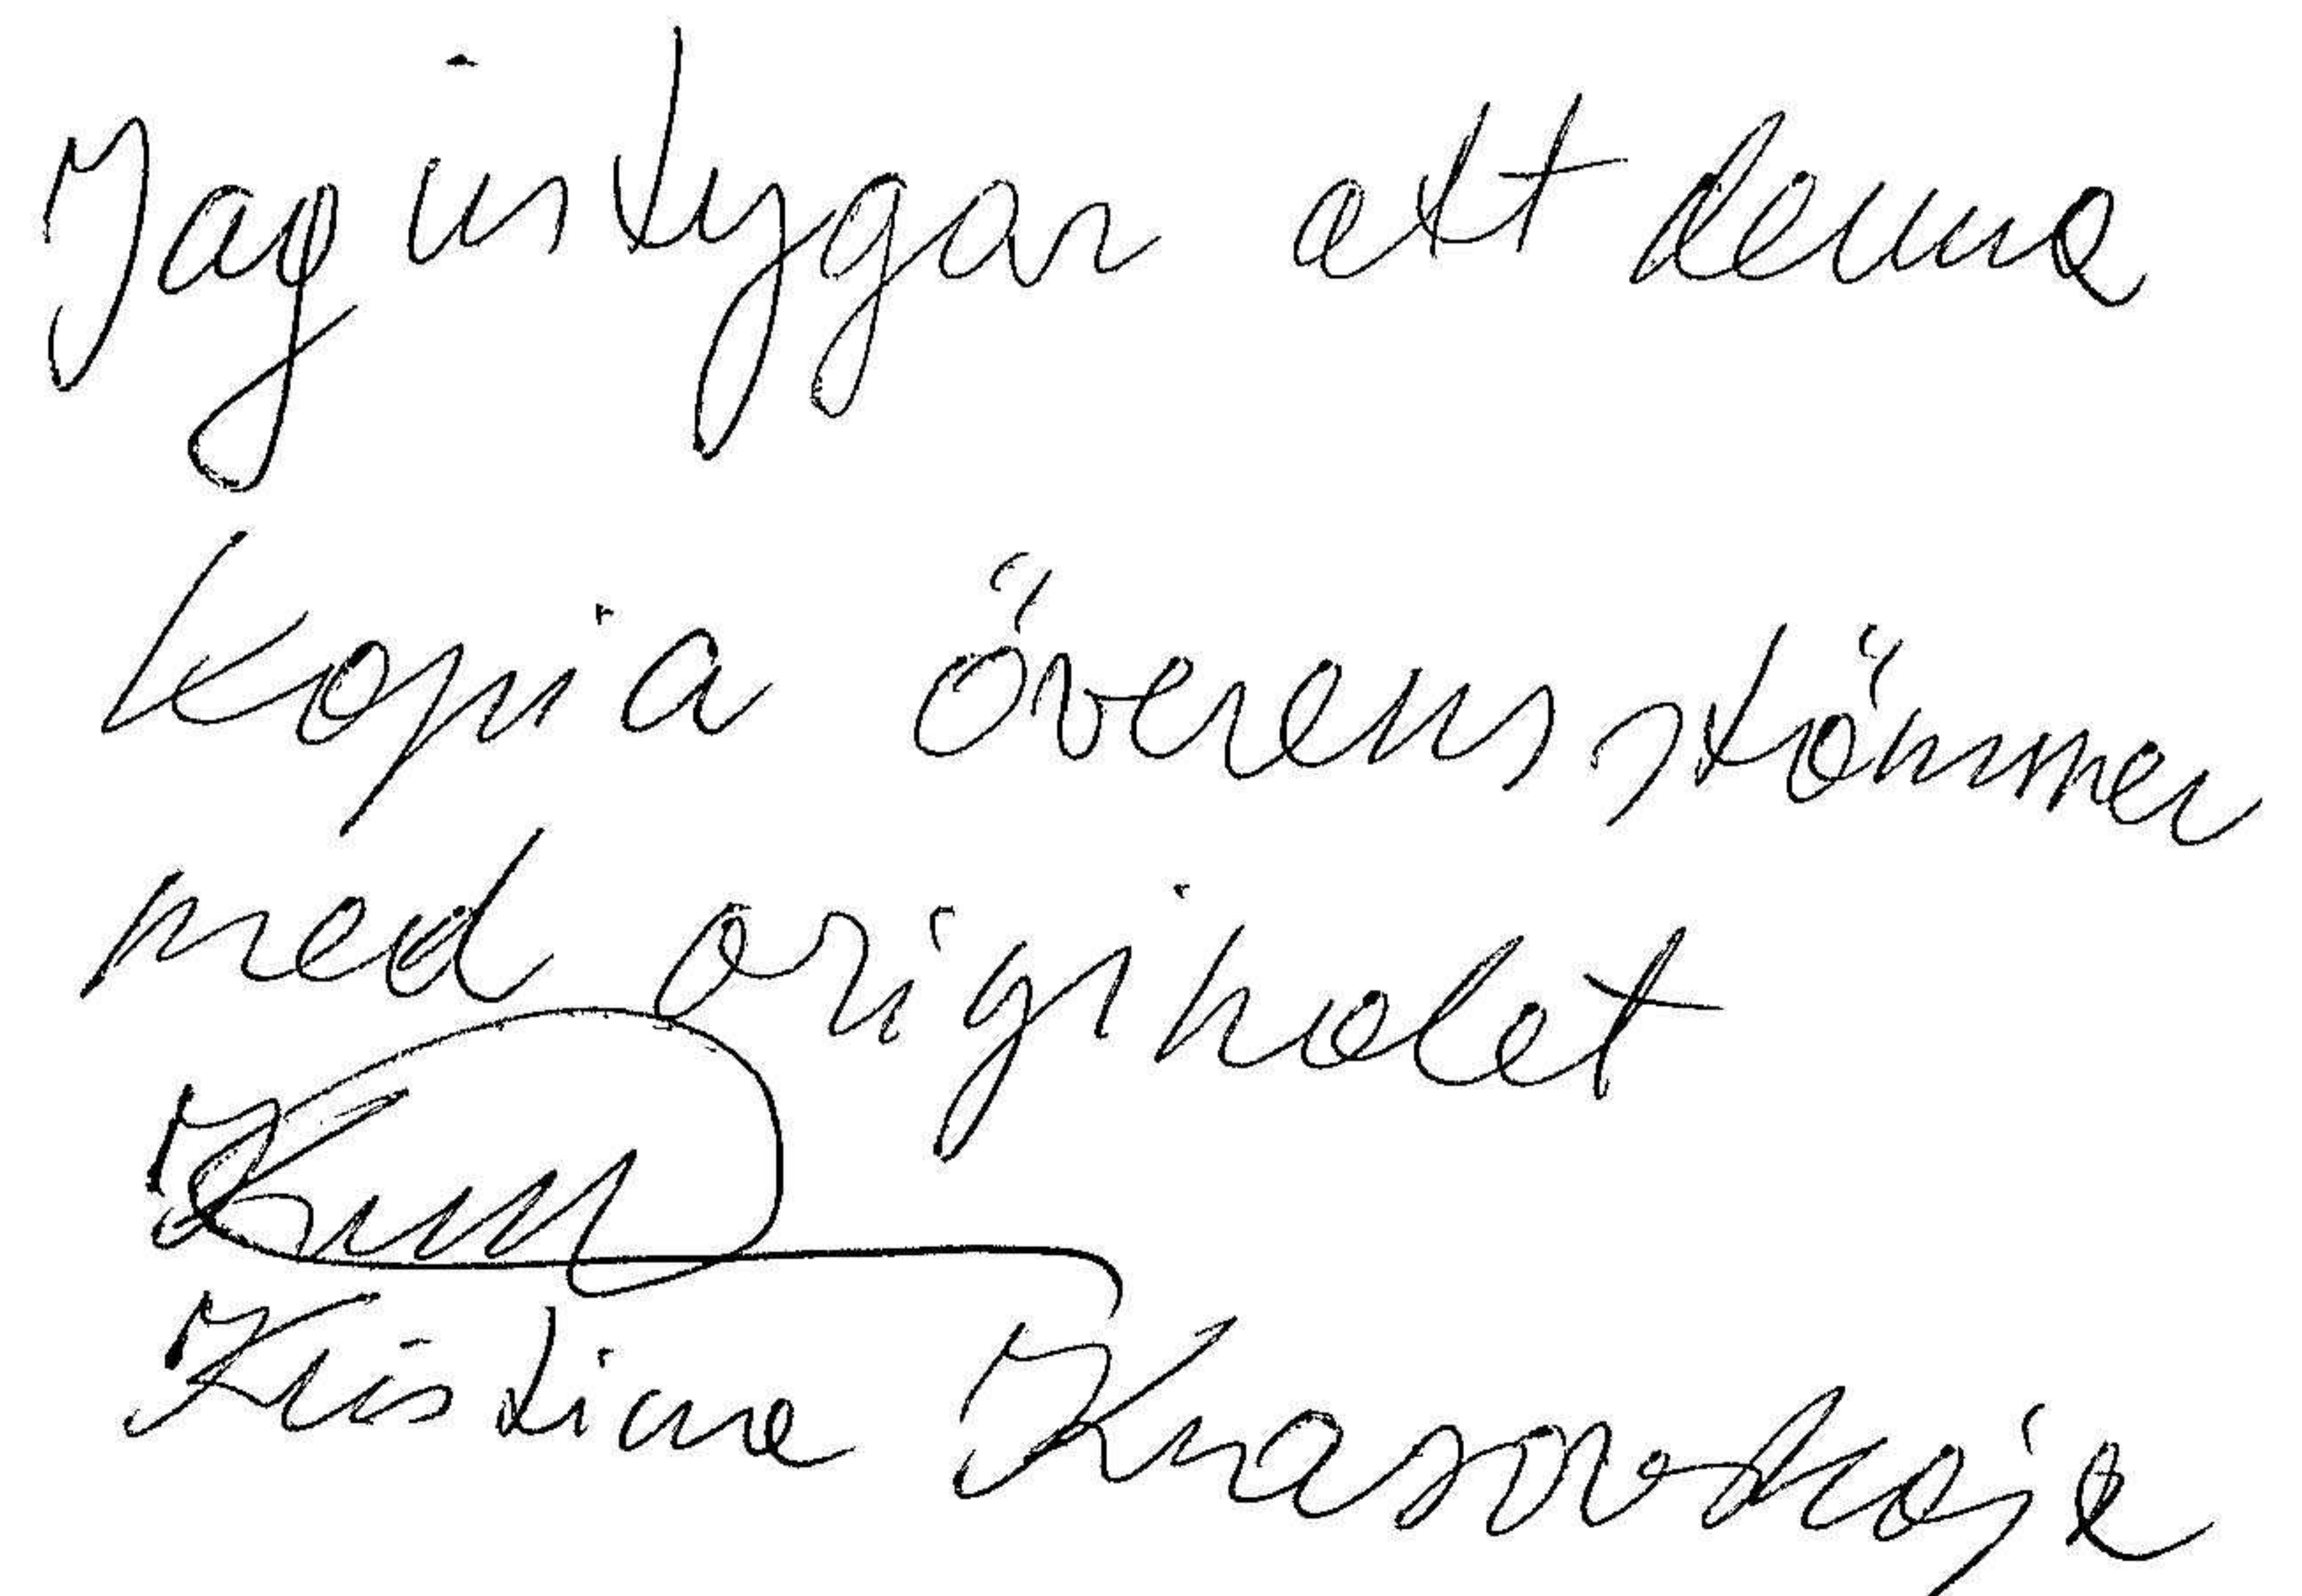 Jag intygar att denna
kopia överens stömmer
med originalet
Kristina